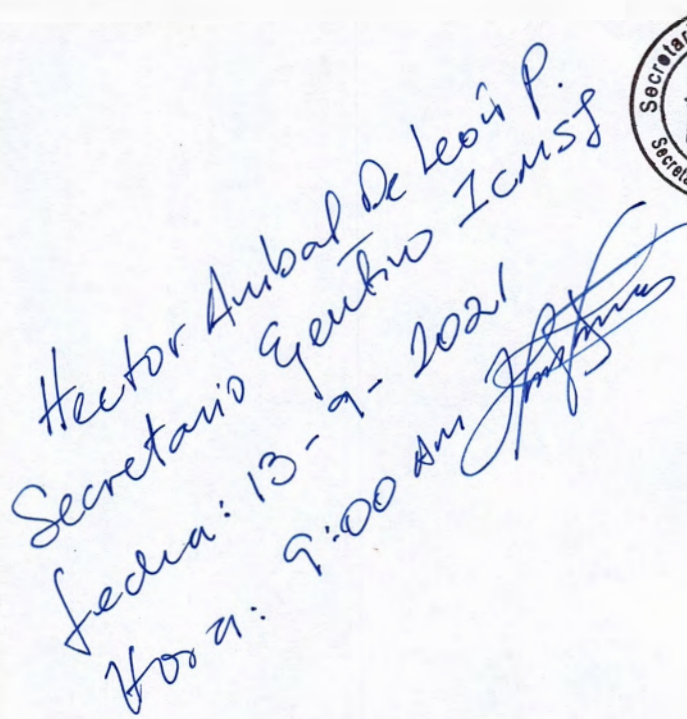 Hector Anibal De León P.
Secretario Ejecutivo ICMSJ
fecha: 13-9-2021
Hora: 9:00 AM